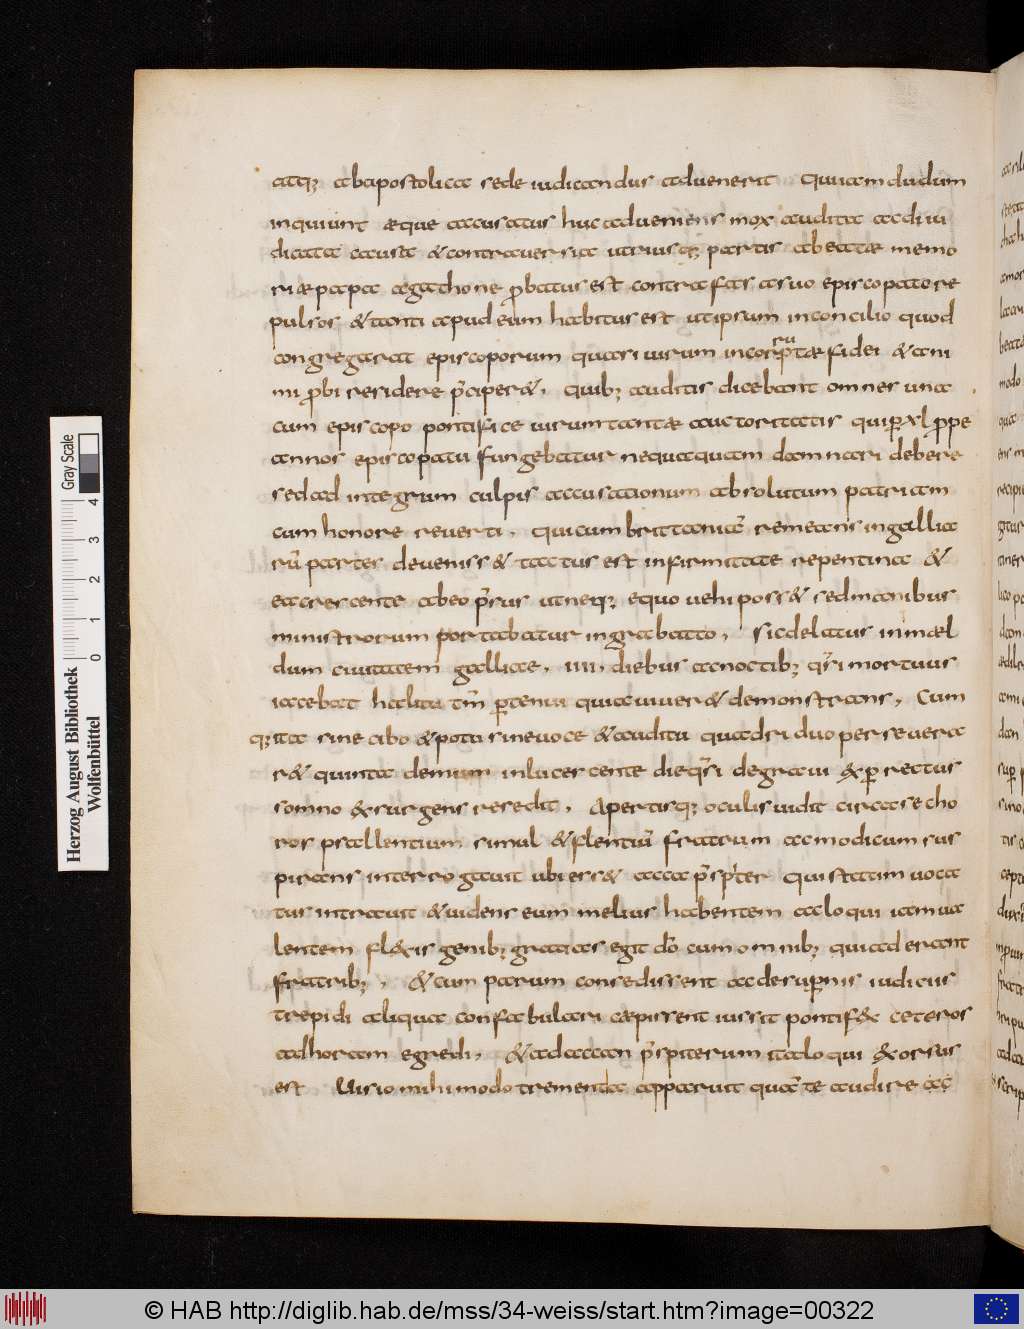 atq; abapostolica sede iudicandus aduenerit Qui iamdudum
inquiunt æque accusatus hucadueniens mox audita acdiiu
dicata causa & controuersia utriusq; partis abeatæ memo
riæ papa agathone p̄batus est contra fas asuo episcopatore
pulsos & tanti apud eum habitus est utipsum inconcilio quod
congregarat episcoporum quasi uirum incorruptæ fidei & ani
mi p̄bi residere p̄ciper&, Quib; auditis dicebant omnes una
cum episcopo pontifice uirum tantæ auctoritatis qui p̱ xl p̄pe
annos episcopatu fungebatur nequaquam damnari debere
sedad integrum culpis accusationum absolutum patriam
cum honore reuerti, Qui cum brittaniā remeans ingallia
rū partes deueniss& tactus est infirmitate repentina &
ea crescente abeo p̄ssus utneq; equo uehi poss& sedmanibus
ministrorum portabatur ingrabatto, Sicdelatus inmæl
dum ciuitatem galliae, IIII diebus acnoctib; q̄si mortuus
iacebat halitu tm̄ p̱tenui quia uiuer& demonstrans, Cum
q; ita sine cibo & potu sineuoce & auditu quadriduo perseuera
r& quinta demum inlucescente die q̄si degraui exp̱rectus
somno exsurgens resedit, Apertisq; oculis uidit circa se cho
ros psallentium simul & flentiū fratrum acmodicum sus
pirans interrogauit ubi ess& acca p̄sp̄ter Qui statim uoca
tus intrauit & uidens eum melius habentem acloqui iam ua
lentem flexis genib; gratias egit dō cum omnib; quiaderant
fratrib;, & cum parum consedissent acdesup̱nis iudiciis
trepidi aliqua confabulari cæpissent iussit pontifex ceteros
adhoram egredi, & adaccan p̄spiterum italoqui exorsus
est Uisio mihi modo tremenda apparuit quā te audire ac
Herzog August Bibliothek
Wolfenbüttel
Gray Scale
0 1 2 3 4
© HAB http://diglib.hab.de/mss/34-weiss/start.htm?image=00322